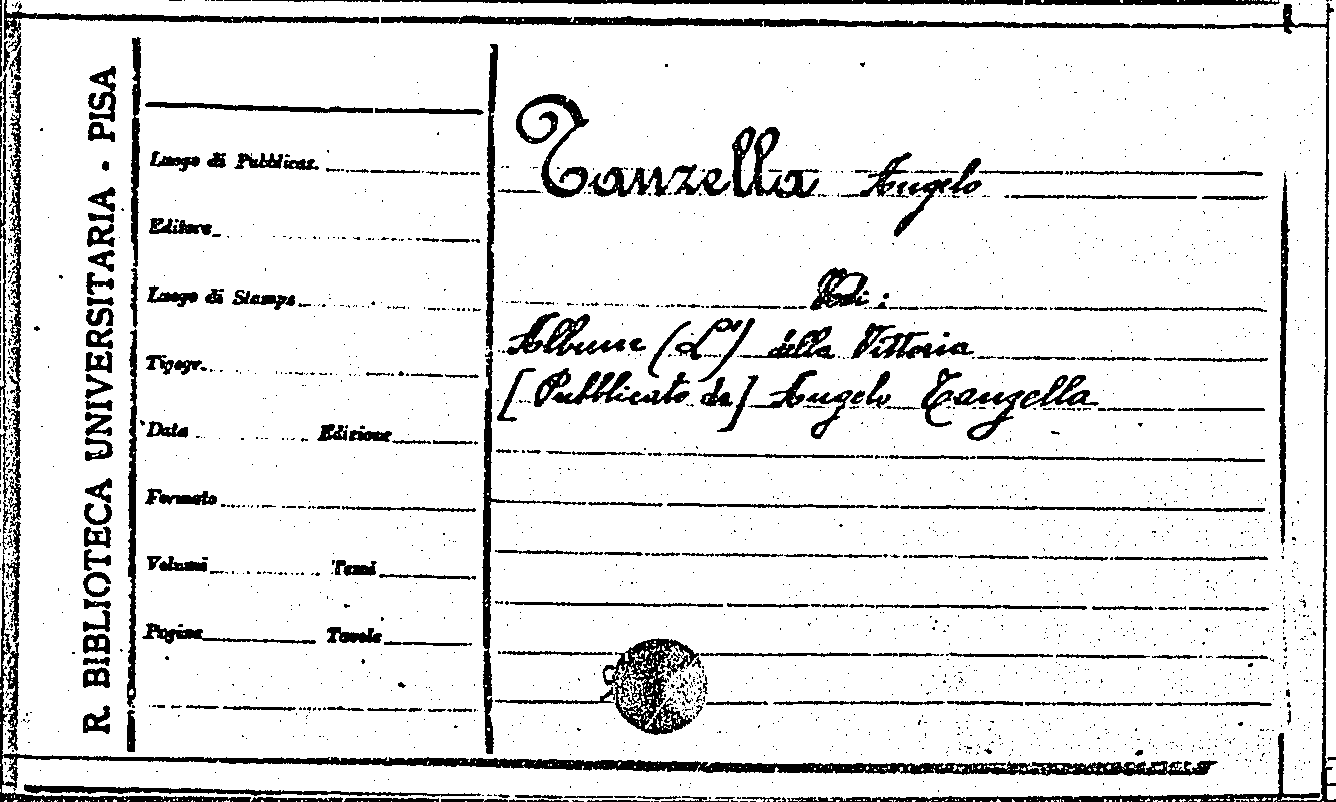 R. BIBLIOTECA UNIVERSITARIA - PISA
Luogo di Pubblicaz.
Editore
Luogo di Stampa
Tipogr.
Data Edizione
Formato
Volumi Tomi
Pagine Tavole
Tanzella Angelo
Vedi:
Album (L') della Vittoria
[Pubblicato da] Angelo Tanzella